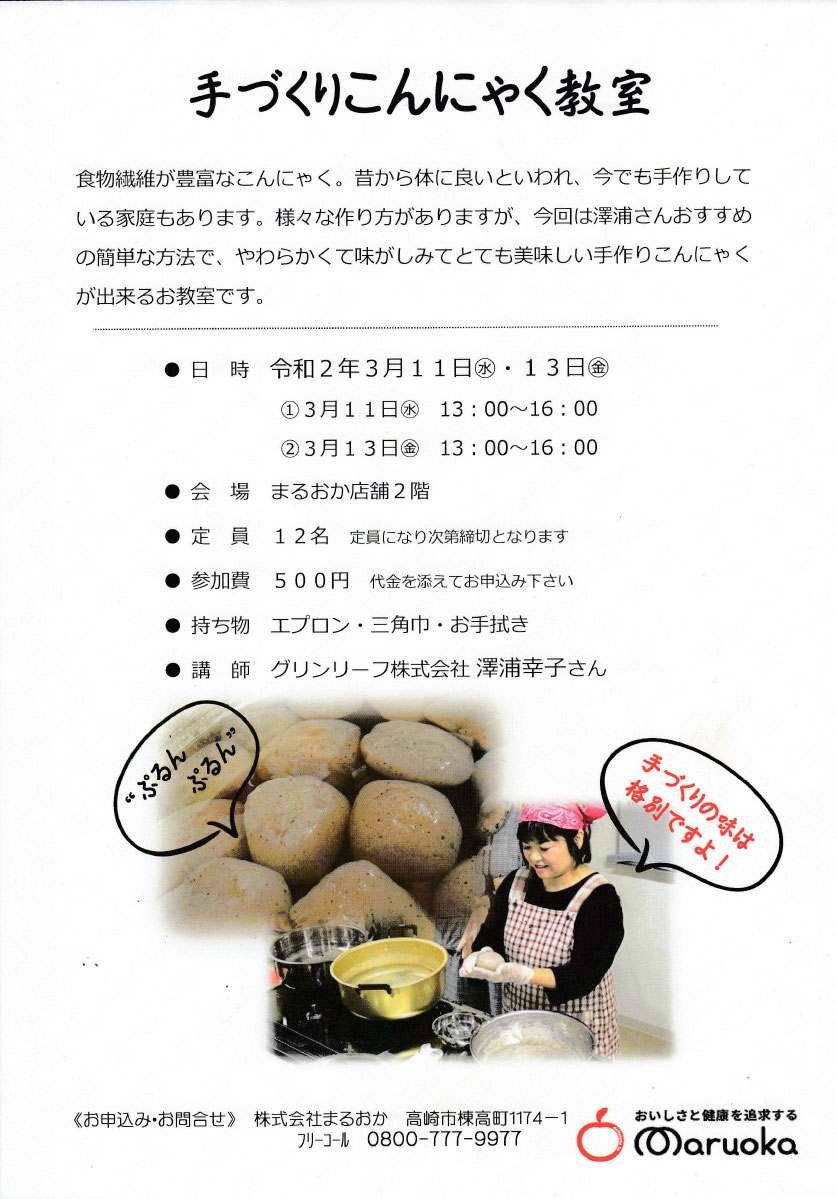 手づくりこんにゃく教室
食物繊維が豊富なこんにゃく。昔から体に良いといわれ、今でも手作りして
いる家庭もあります。様々な作り方がありますが、今回は澤浦さんおすすめ
の簡単な方法で、やわらかくて味がしみてとても美味しい手作りこんにゃく
が出来るお教室です。
● 日　時　令和２年３月１１日㊌・１３日㊎
①３月１１日㊌　13：00～16：00
②３月１３日㊎　13：00～16：00
● 会　場　まるおか店舗２階
● 定　員　１２名　定員になり次第締切となります
● 参加費　５００円　代金を添えてお申込み下さい
● 持ち物　エプロン・三角巾・お手拭き
● 講　師　グリンリーフ株式会社 澤浦幸子さん
“ぷるん
ぷるん”
手づくりの味は
格別ですよ！
《お申込み・お問合せ》　株式会社まるおか　高崎市棟高町1174－1
ﾌﾘｰｺｰﾙ　0800-777-9977
おいしさと健康を追求する
Maruoka